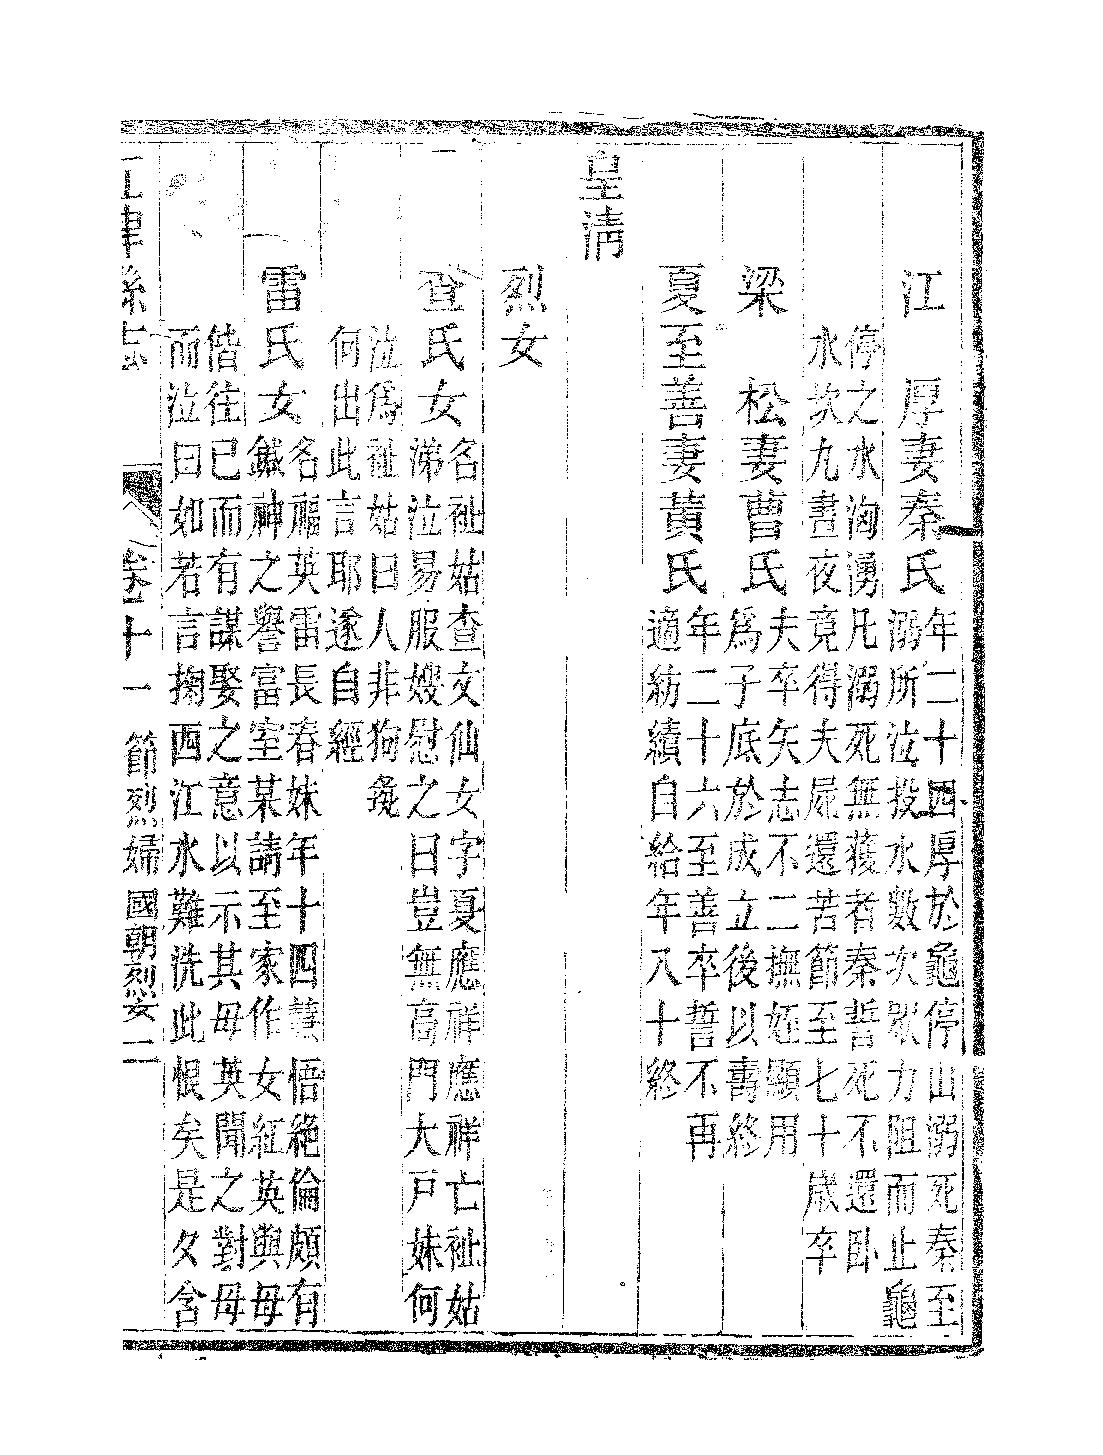 江　厚妻秦氏
年二十四厚於龜停山溺死秦至
溺所泣投水數次眾力阻而止龜
停之水洶湧凡溺死無獲者秦誓死不還臥
水次九晝夜竟得夫屍還苦節至七十歲卒
梁　松妻曹氏
夫卒矢志不二撫姪顯用
爲子底於成立後以壽終
夏至善妻黃氏
年二十六至善卒誓不再
適紡績自給年八十終
皇清
烈女
查氏女
名祉姑查文仙女字夏應祥應祥亡祉姑
涕泣易服嫂慰之曰豈無高門大戸妹何
泣爲祉姑曰人非狗彘
何出此言耶遂自經
雷氏女
名福英雷長春妹年十四慧悟絶倫頗有
鍼神之譽富室某請至家作女紅英與母
偕往已而有謀娶之意以示其母英聞之對母
而泣曰如若言掬西江水難洗此恨矣是夕含
江津縣志
卷十一
節烈婦
國朝烈女
二